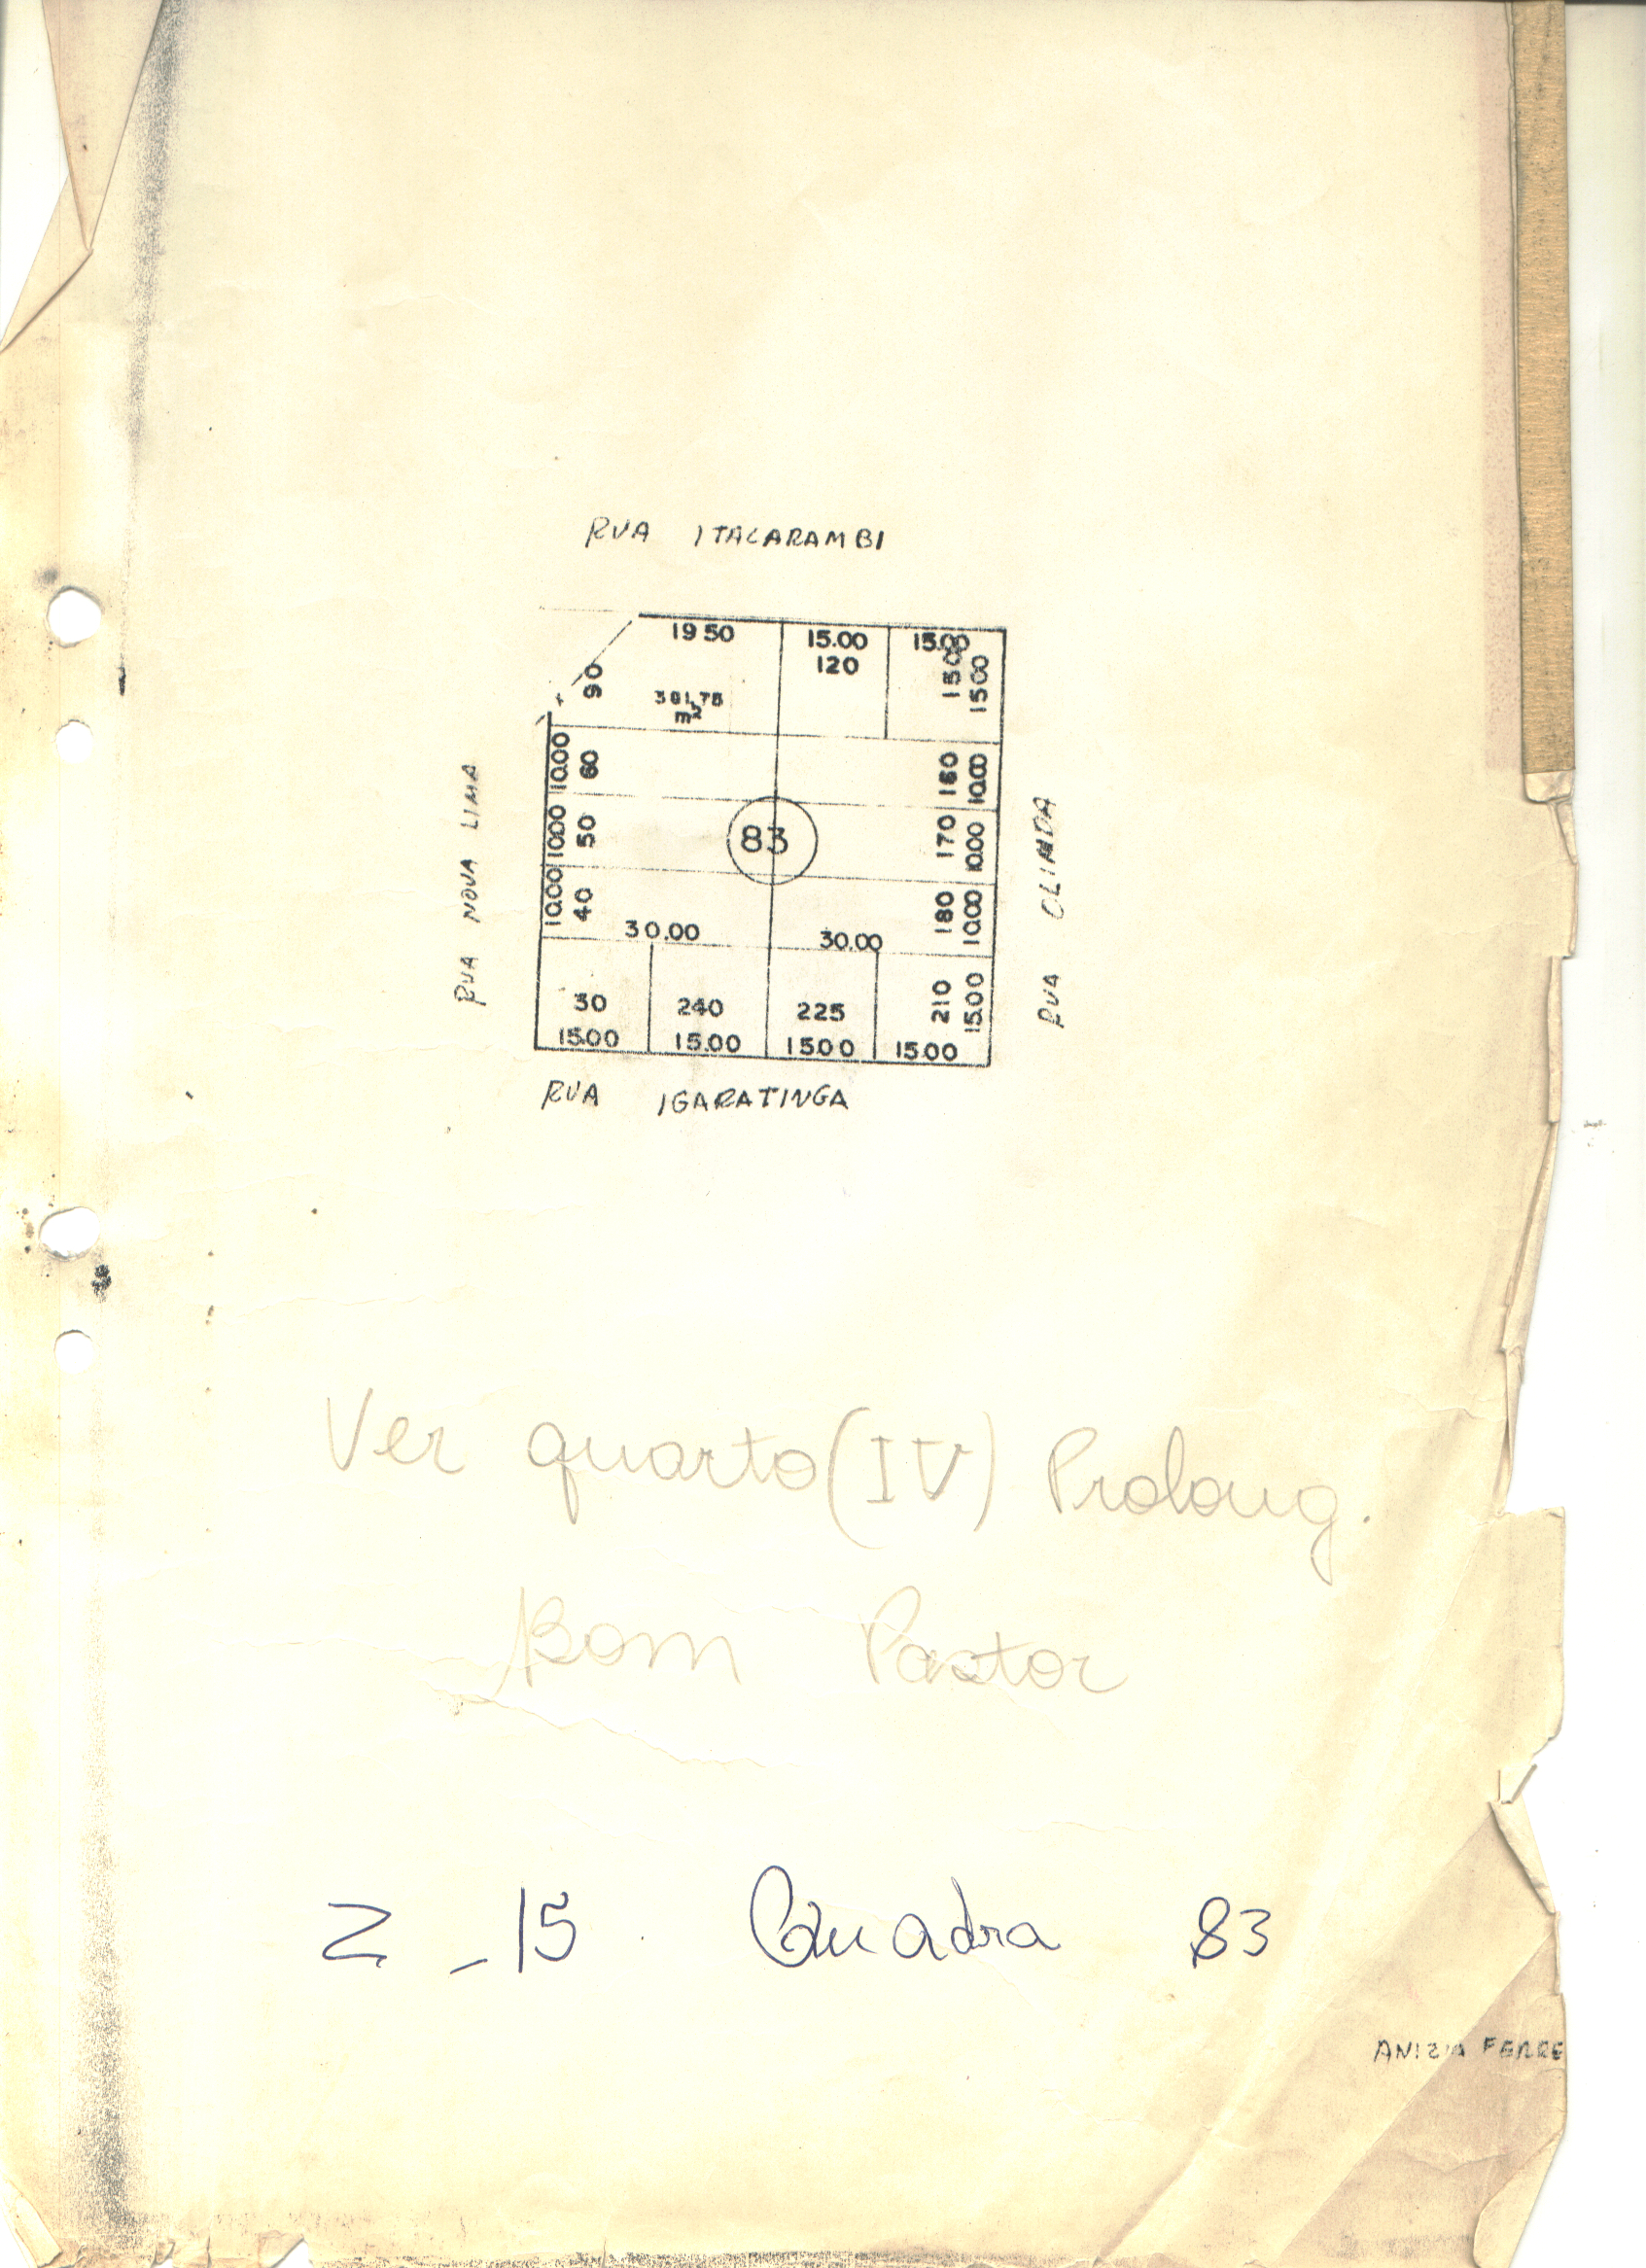 RUA ITACARAMBI
19 50 15.00 15.00
120
90 1500 1500
381,75
m²
10.00 60 160 10.00
10.00 50 83 170 10.00
10.00 40 180 10.00
30.00 30.00
30 240 225 210 15.00
15.00 15.00 15.00 15.00
RUA NOVA LIMA
RUA OLINDA
RUA IGARATINGA
Ver quarto (IV) Prolong.
Bom Pastor
Z - 15 Quadra 83
ANIZIA FERRE